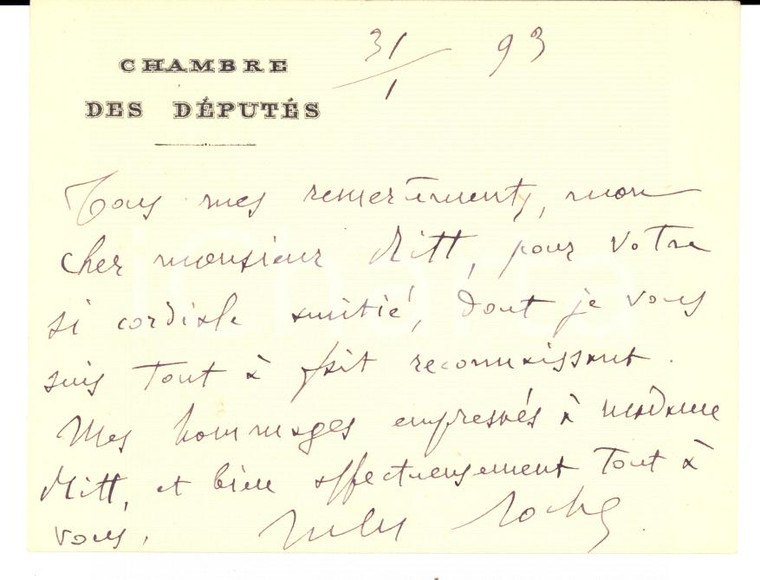 CHAMBRE
DES DÉPUTÉS
31/1 93
Tous mes remerciments, mon
cher monsieur Mitt, pour votre
si cordiale amitié, dont je vous
suis tout à fait reconnaissant.
Mes hommages empressés à madame
Mitt, et bien affectueusement tout à
vous,
Jules Roche